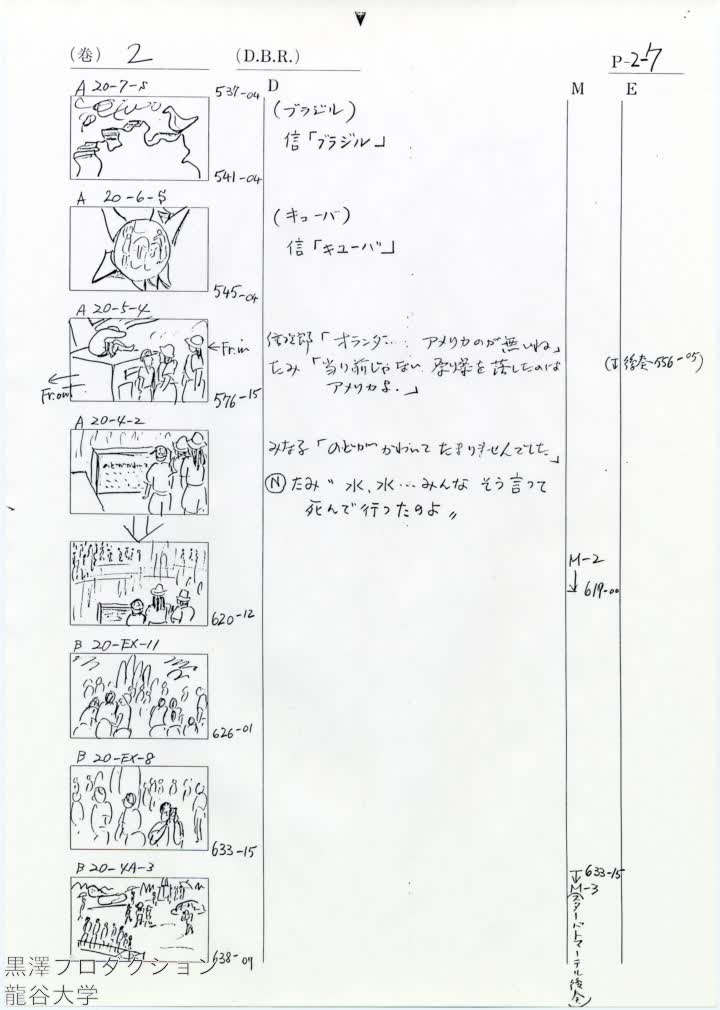 (巻) 2 (D.B.R.) P-2-7
D M E
A 20-7-5 537-04
(ブラジル)
信「ブラジル」
541-04
A 20-6-5
(キューバ)
信「キューバ」
545-04
A 20-5-4
←Fr.in
信次郎「オランダ… アメリカのが無いね」
たみ「当り前じゃない 原爆を落したのは
アメリカよ.」
(↓後奏 556-05)
Fr.out
576-15
A 20-4-2
のどがかわいて
みな子「のどが かわいて たまりませんでした」
Ⓝ たみ〝水、水…みんな そう言って
死んで行ったのよ〟
M-2
↓ 619-00
620-12
B 20-EX-11
626-01
B 20-EX-8
633-15
B 20-4A-3
633-15
↓
M-3
(スターバトマーテル後奏)
638-07
黒澤プロダクション
龍谷大学